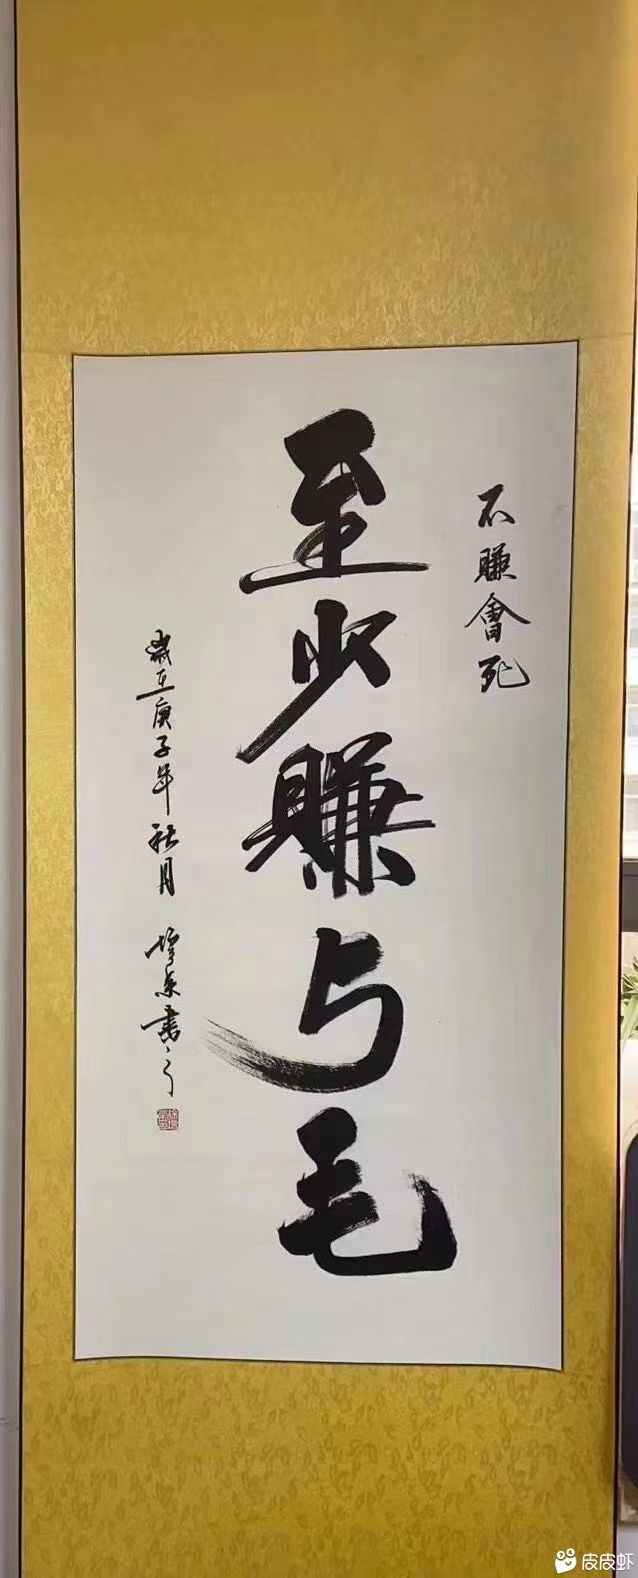 不賺會死
至少賺5毛
歲在庚子年秋月 書
皮皮虾